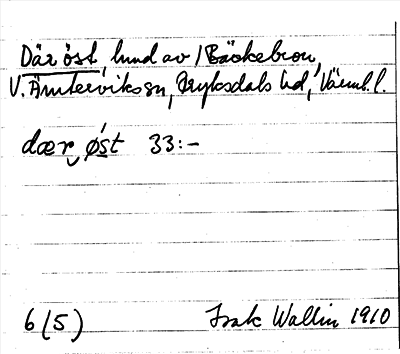 Där öst, lund av / Bäckebron,
V. Ämterviks sn, Fryksdals hd, Värml. l.
dær øst 33:-
6(5) Isak Wallin 1910